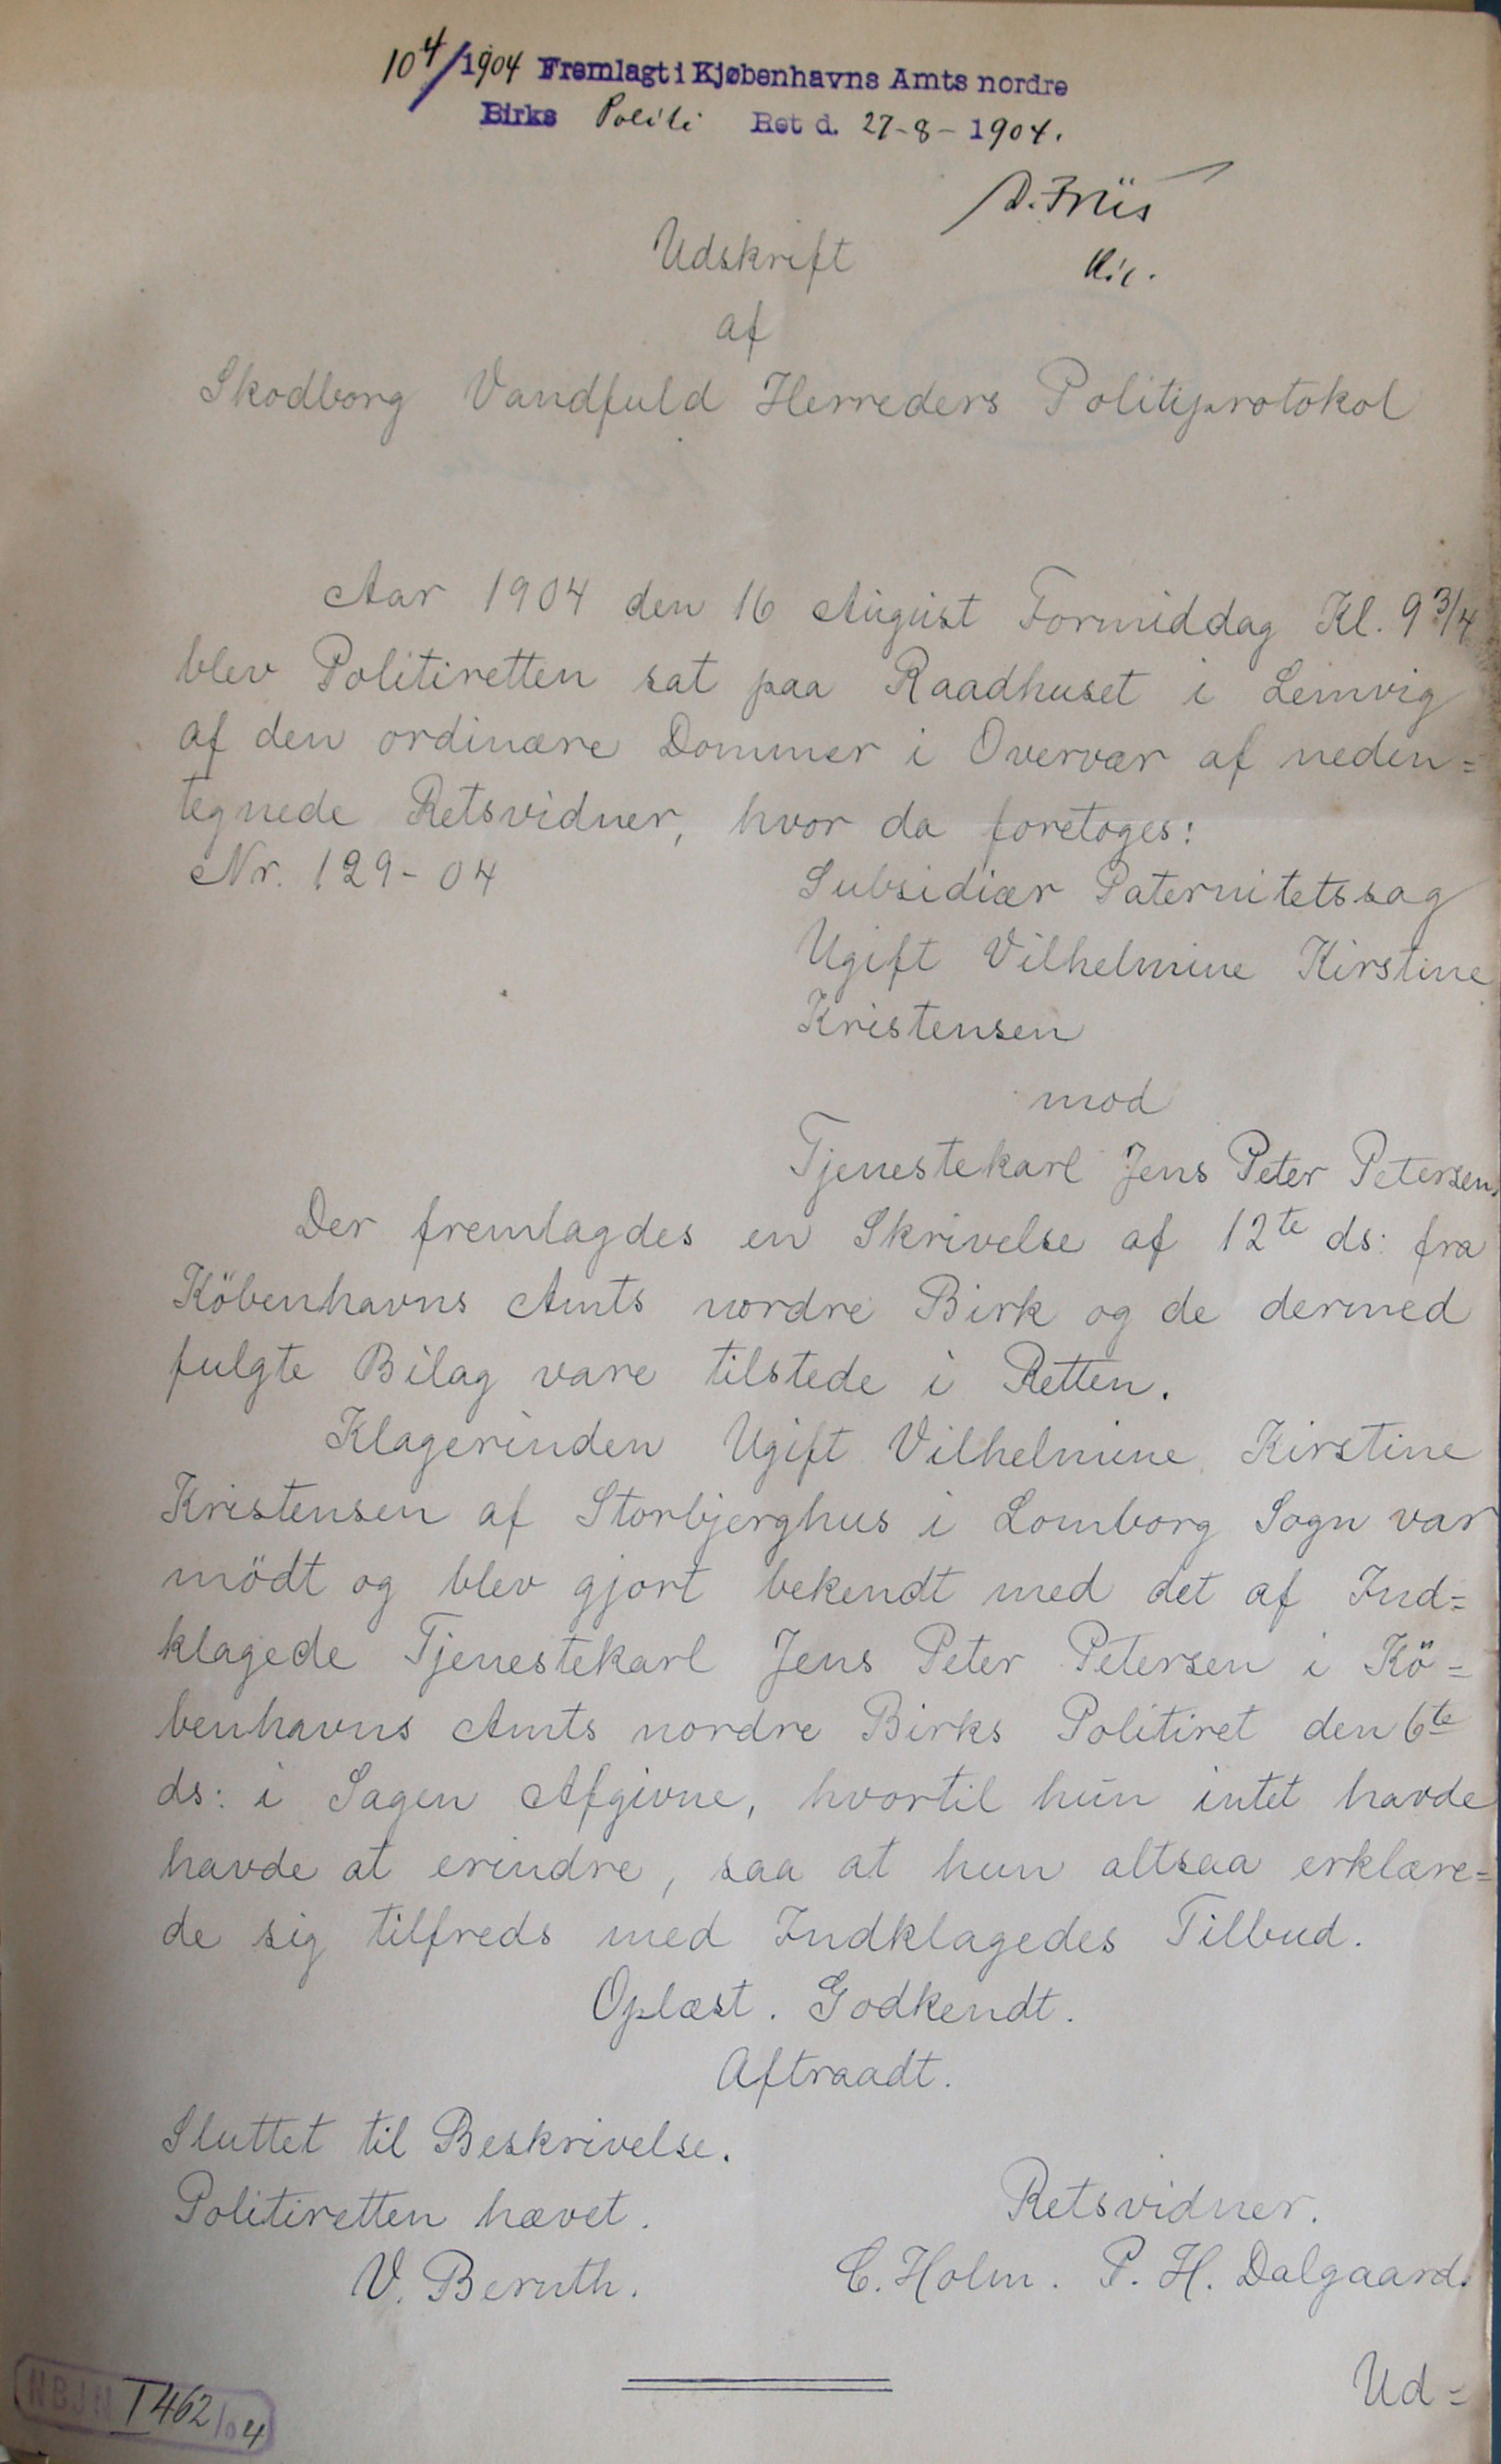 10 4/1904 Fremlagt i Kjøbenhavns Amts nordre
Birks Politi Ret d. 27-8-1904.
D. Friis
Udskrift
af
Skodborg Vandfuld Herreders Politiprotokol
Aar 1904 den 16 August Formiddag Kl. 9 3/4
blev Politiretten sat paa Raadhuset i Lemvig
af den ordinære Dommer i Overvær af neden=
tegnede Retsvidner, hvor da foretoges:
Nr. 129-04
Subsidiær Paternitetssag
Ugift Vilhelmine Kirstine
Kristensen
mod
Tjenestekarl Jens Peter Petersen.
Der fremlagdes en Skrivelse af 12te ds: fra
Köbenhavns Amts nordre Birk og de dermed
fulgte Bilag vare tilstede i Retten.
Klagerinden Ugift Vilhelmine Kirstine
Kristensen af Storbjerghus i Lomborg Sogn var
mödt og blev gjort bekendt med det af Ind=
klagede Tjenestekarl Jens Peter Petersen i Kö=
benhavns Amts nordre Birks Politiret den 6te
ds: i Sagen Afgivne, hvortil hun intet havde
havde at erindre, saa at hun altsaa erklære=
de sig tilfreds med Indklagedes Tilbud.
Oplæst. Godkendt.
Aftraadt.
Sluttet til Beskrivelse.
Politiretten hævet.
Retsvidner.
V. Bernth.
C. Holm. P. H. Dalgaard.
Ud=
NBJN I 462/04